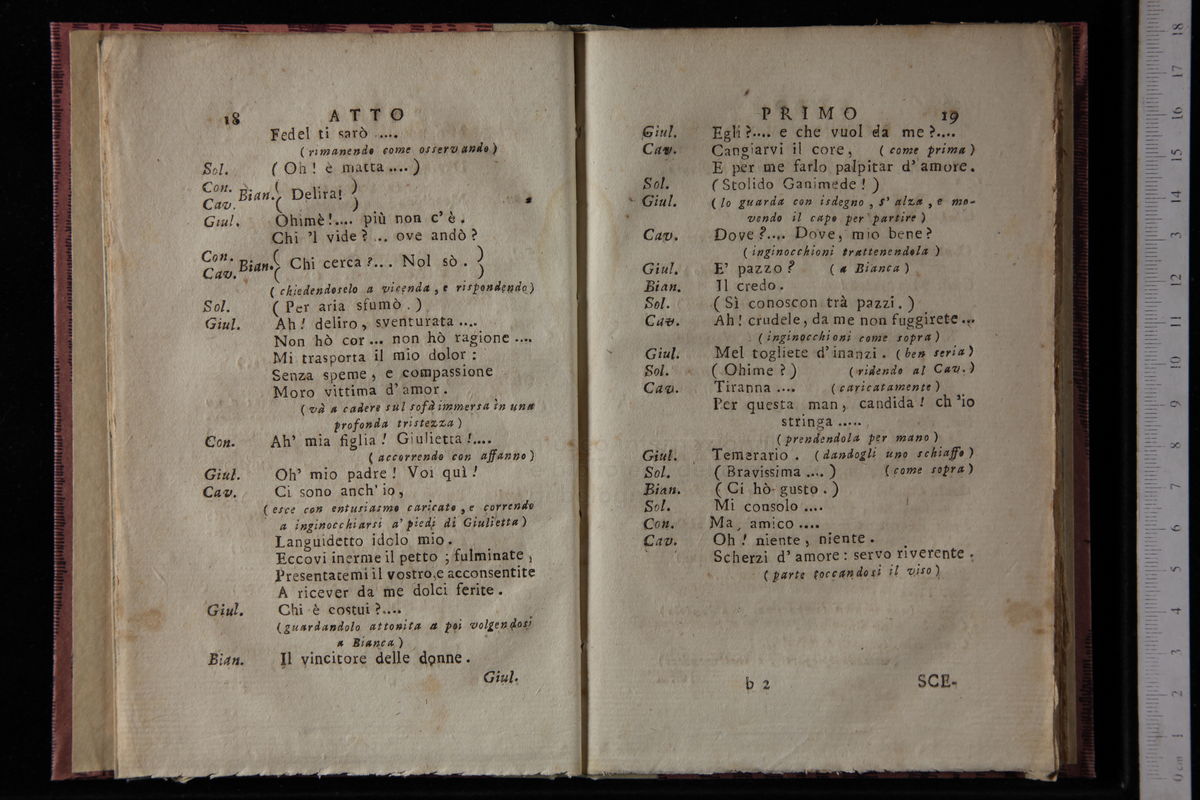 18 ATTO
Fedel ti sarò .....
(rimanendo come osservando)
Sol. (Oh! è matta....)
Con. Cav. Bian. Delira!
Giul. Ohimè!.... più non c'è.
Chi 'l vide? ... ove andò?
Con. Cav. Bian. Chi cerca?... Nol sò.
(chiedendoselo a vicenda, e rispondendo)
Sol. (Per aria sfumò.)
Giul. Ah! deliro, sventurata....
Non hò cor... non hò ragione....
Mi trasporta il mio dolor:
Senza speme, e compassione
Moro vittima d'amor.
(và a cadere sul sofà immersa in una
profonda tristezza)
Con. Ah' mia figlia! Giulietta!....
(accorrendo con affanno)
Giul. Oh' mio padre! Voi quì!
Cav. Ci sono anch'io,
(esce con entusiasmo caricato, e correndo
a inginocchiarsi a' piedi di Giulietta)
Languidetto idolo mio.
Eccovi inerme il petto; fulminate,
Presentatemi il vostro, e acconsentite
A ricever da me dolci ferite.
Giul. Chi è costui?....
(guardandolo attonita a poi volgendosi
a Bianca)
Bian. Il vincitore delle donne.
Giul.
PRIMO 19
Giul. Egli?.... e che vuol da me?....
Cav. Cangiarvi il core, (come prima)
E per me farlo palpitar d'amore.
Sol. (Stolido Ganimede!)
Giul. (lo guarda con isdegno, s'alza, e mo-
vendo il capo per partire)
Cav. Dove?.... Dove, mio bene?
(inginocchioni trattenendola)
Giul. E' pazzo? (a Bianca)
Bian. Il credo.
Sol. (Sì conoscon trà pazzi.)
Cav. Ah! crudele, da me non fuggirete...
(inginocchioni come sopra)
Giul. Mel togliete d'inanzi. (ben seria)
Sol. (Ohime?) (ridendo al Cav.)
Cav. Tiranna.... (caricatamente)
Per questa man, candida! ch'io
stringa.....
(prendendola per mano)
Giul. Temerario. (dandogli uno schiaffo)
Sol. (Bravissima....) (come sopra)
Bian. (Ci hò gusto.)
Sol. Mi consolo....
Con. Ma, amico....
Cav. Oh! niente, niente.
Scherzi d'amore: servo riverente.
(parte toccandosi il viso)
b 2 SCE-
0 cm 1 2 3 4 5 6 7 8 9 10 11 12 13 14 15 16 17 18